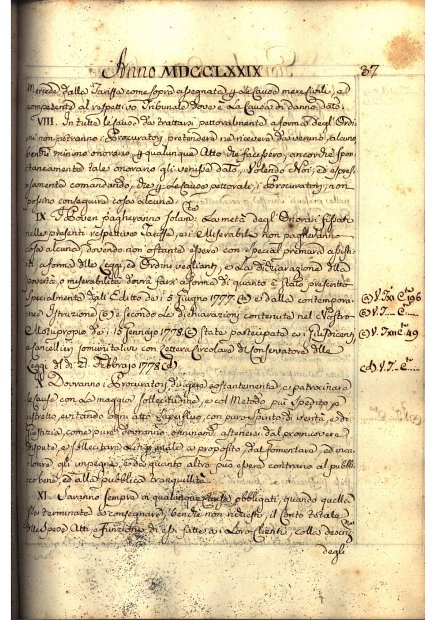 Anno MDCCLXXIX 87
Mercede dalle Tariffe come sopra assegnata p. le Cause mere Civili, e
competente al respettivo Tribunale dove è la Causa di danno dato.
VIII. In tutte le Cause da trattarsi pettoralmente a forma degl' Ordini
non potranno i Procuratori pretendere nè ricevere da veruno, alcuno
benchè minimo onorario p. qualunque Atto che facessero, ancorchè spon-
taneamente tale onorario gli venisse dato, Volendo Noi, ed espres-
samente comandando, che p. le Cause pettorali, i Procuratori non
possino conseguire cosa alcuna.
IX. I Poveri pagheranno solam. la metà degl' Onorari fissati
nelle presenti respettive Tariffe, e i Miserabili non pagheranno
cosa alcuna, dovendo non ostante essere con special premura assisti-
ti a forma delle Leggi, ed Ordini veglianti, e la dichiarazione della
povertà, o miserabilità dovrà farsi a forma di quanto è stato prescritto
specialmente dagli Editto de' 3 Giugno 1777. (a) e dalla contempora-
nea Istruzione (b) e secondo le dichiarazioni contenute nel Nostro
Motuproprio de' 15 Gennaio 1778. (c) state partecipate ai Giusdicenti
e Cancellieri Comunitativi con Lettera Circolare del Conservatore delle
Leggi de' 21. Febbraio 1778 (d)
X. Dovranno i Procuratori dirigere costantemente, e patrocinare
le Cause con la maggior sollecitudine, e col Metodo più spedito, e
ristretto, evitando ogni atto superfluo, con puro spirito di verità, e di
Giustizia, come pure dovranno astenersi dal promuovere
dispute, e sollecitare a proposito, dal fomentare, ed inca-
lorire gli impegni, e da quanto altro può essere contrario al pubbli-
co bene, ed alla pubblica tranquillità.
XI. Saranno sempre in qualunque Causa obbligati, quando quella
sia terminata, a consegnare, benchè non richiesti, il Conto totale
delle Spese, Atti, e Funzioni di essi fatte a i Loro Clienti, colla
degli
(a) V. T. XI C. 196
(b) V. T. C.
(c) V. T. C. 49
(d) V. T. C.